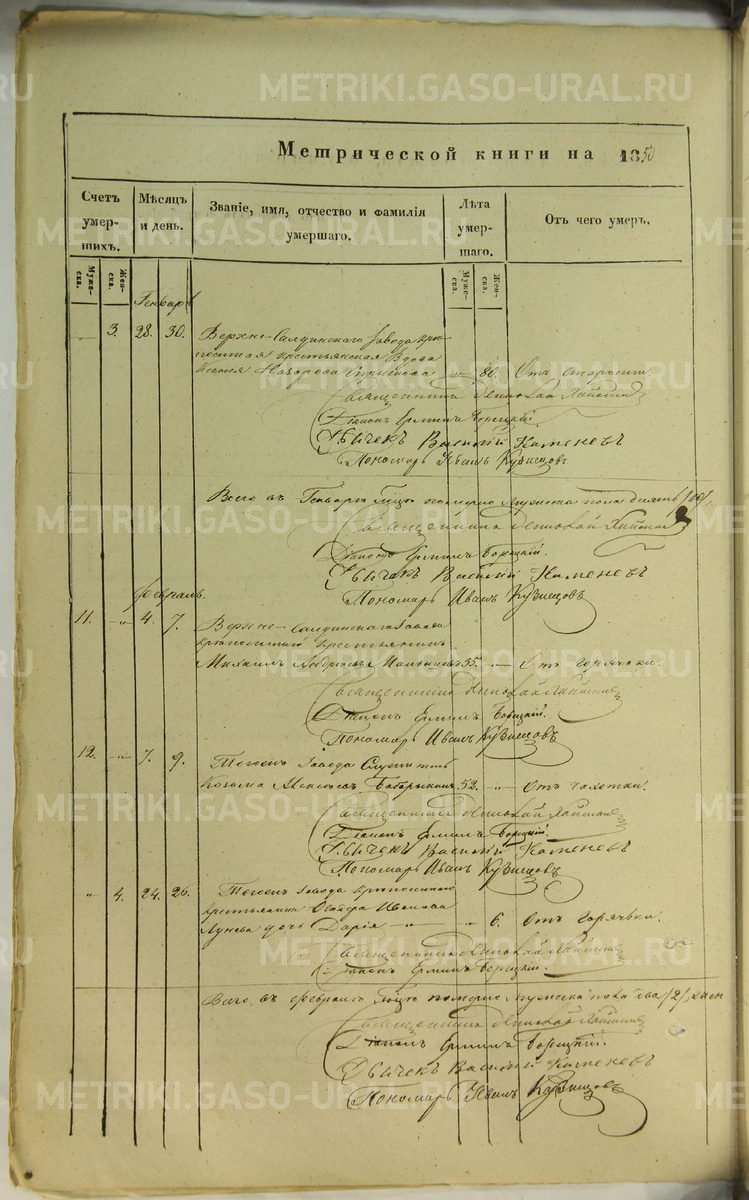 METRIKI.GASO-URAL.RU
Метрической книги на 1850
Счетъ умер- шихъ.
Мѣсяцъ и день.
Званіе, имя, отчество и фамилія умершаго.
Лѣта умер- шаго.
Отъ чего умеръ.
Муже- ска.
Жен- ска.
Муже- ска.
Жен- ска.
Генварь
„ 3. 28. 30. Верхне-Салдинскаго Завода крѣ-
постная крестьянская Вдова
Назарова „ 80. Отъ старости.
Священникъ Николай
Діаконъ Ермилъ Борецкій.
Дьячекъ Василій Каменевъ
Пономарь Иванъ Кузнецовъ
Всего въ Генварѣ м‑цѣ померло Мужеска пола десять /10/,
Священникъ Николай
Діаконъ Ермилъ Борецкій.
Дьячекъ Василій Каменевъ
Пономарь Иванъ Кузнецовъ
Февраль.
11. „ 4. 7. Верхне-Салдинскаго Завода
крѣпостный крестьянинъ
Михаилъ Андреевъ 55. „ Отъ горячки.
Священникъ Николай
Діаконъ Ермилъ Борецкій.
Пономарь Иванъ Кузнецовъ
12. „ 7. 9. Тогоже Завода Служитель
Козьма 52. „ Отъ чахотки.
Священникъ Николай
Діаконъ Ермилъ Борецкій.
Дьячекъ Василій Каменевъ
Пономарь Иванъ Кузнецовъ
„ 4. 24. 26. Тогоже Завода крѣпостнаго
крестьянина Ѳедора Иванова
Лунева дочь Дарія „ 6. Отъ горячки.
Священникъ Николай
Діаконъ Ермилъ Борецкій.
Всего въ Февралѣ м‑цѣ померло Мужеска пола два /2/, жен
Священникъ Николай
Діаконъ Ермилъ Борецкій.
Дьячекъ Василій Каменевъ
Пономарь Иванъ Кузнецовъ